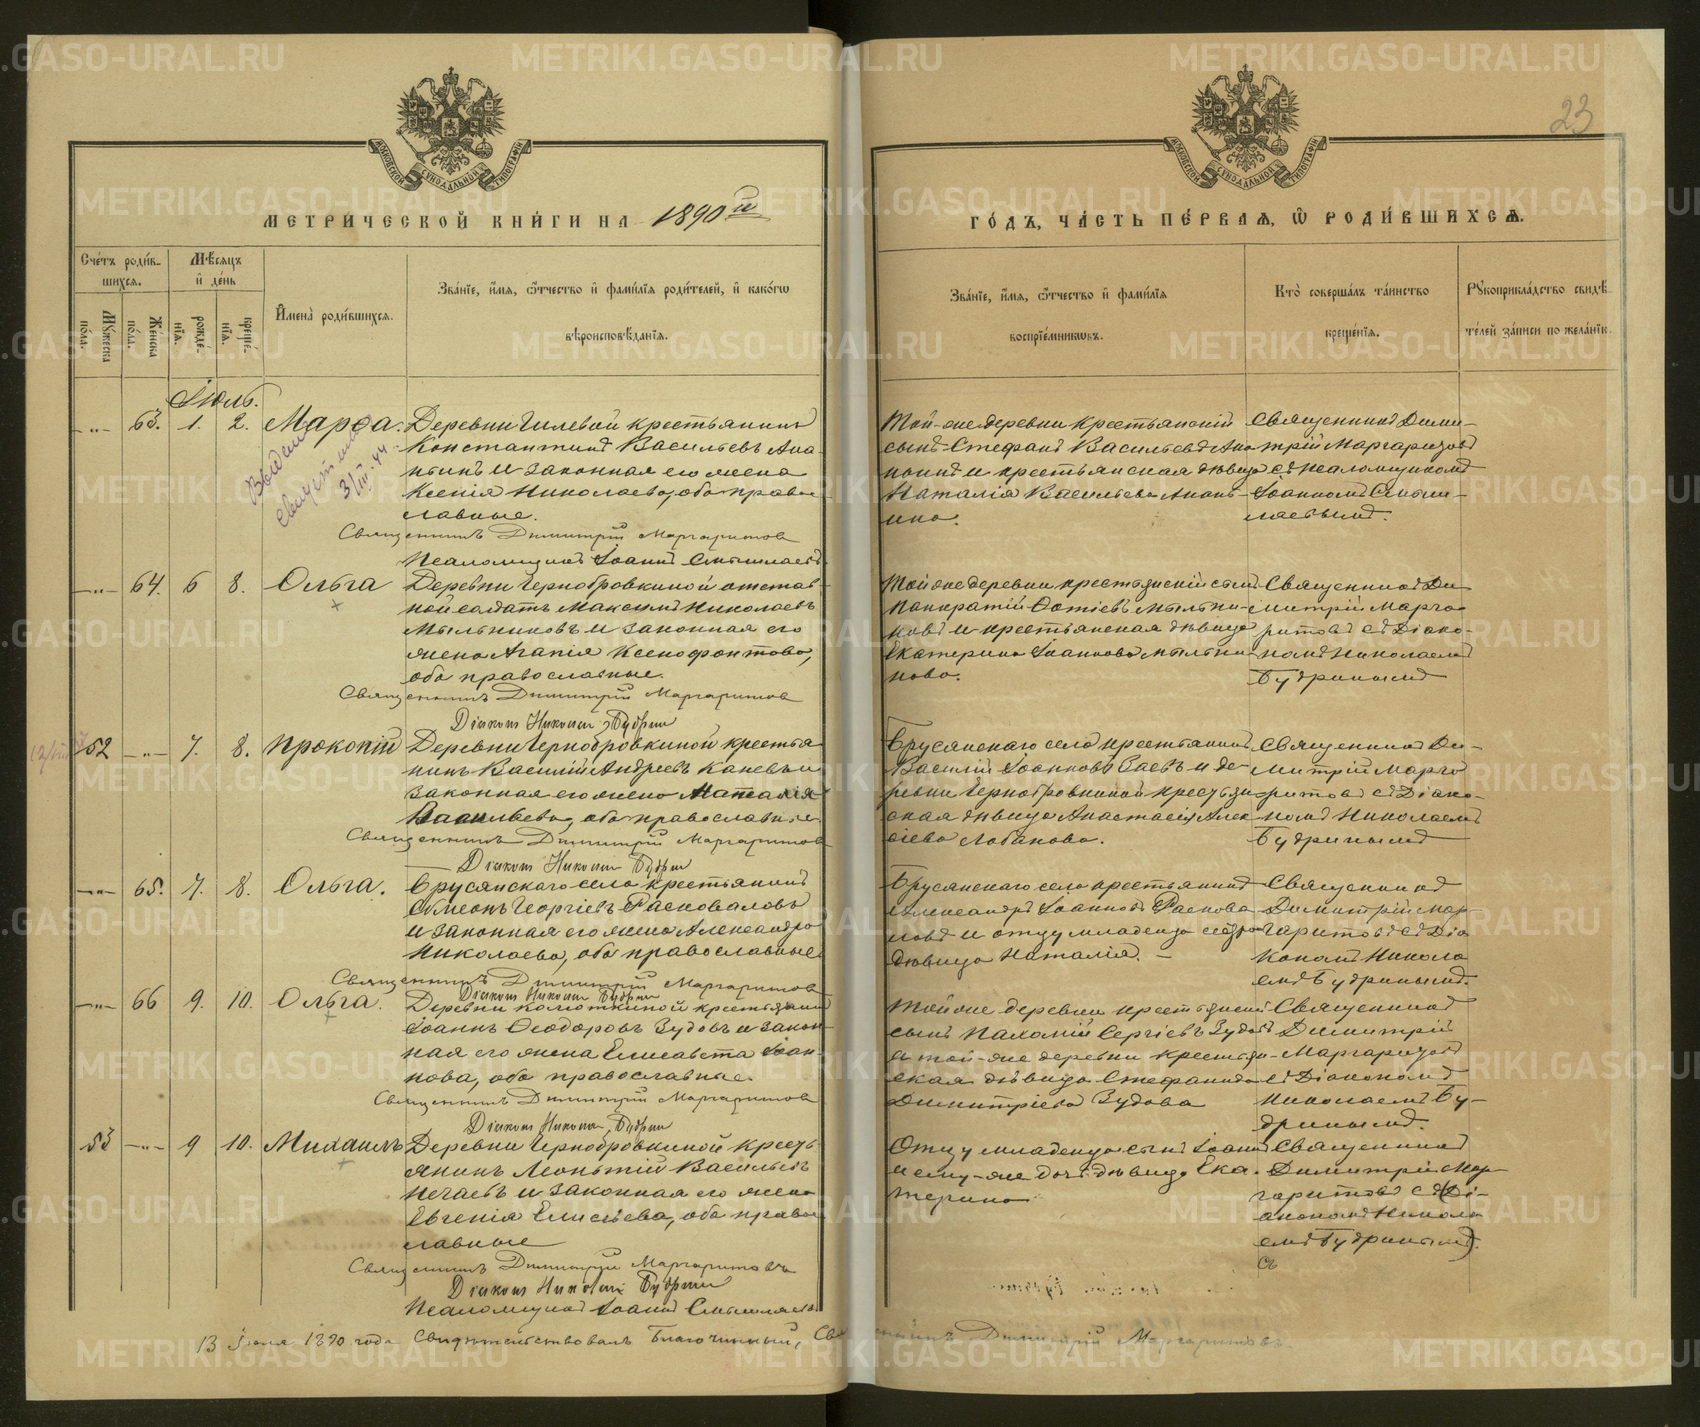 23
МЕТРИ́ЧЕСКОЙ КНИ́ГИ НА 1890й
ГО́ДЪ, ЧА́СТЬ ПЕ́РВАѦ, Ѽ РОДИ́ВШИХСѦ.
Сче́тъ роди́в-
шихсѧ.
Мꙋ́жеска по́ла.
Же́нска по́ла.
Мѣ́сѧцъ
и҆ де́нь
рожде́-нїѧ.
креще́-нїѧ.
И҆мена̀ роди́вшихсѧ.
Зва́нїе, и҆́мѧ, ѻ҆́тчество и҆ фами́лїѧ роди́телей, и҆ како́гѡ
вѣроисповѣ́данїѧ.
Зва́нїе, и҆́мѧ, ѻ҆́тчество и҆ фами́лїѧ
воспрїе́мникѡвъ.
Кто̀ соверша́лъ та́инство
креще́нїѧ.
Рꙋкоприкла́дство свидѣ́-
телей за́писи по жела́нїю.
Іюль.
63. 1. 2. Марѳа.
Деревни Гилевой крестьянинъ
Константинъ Васильевъ Ана-
ньинъ и законная его жена
Ксенія Николаева, оба право-
славные.
Священникъ Димитрій Маргаритовъ
Псаломщикъ Іоаннъ Смышляевъ
Той-же деревни крестьянскій
сынъ Стефанъ Васильевъ Ана
ньинъ и крестьянская дѣвица
Наталія Васильева Анань-
ина.
Священникъ Дими-
трій Маргаритовъ
съ псаломщикомъ
Іоанномъ Смыш-
ляевымъ.
64. 6 8. Ольга
Деревни Чернобровкиной отстав-
ной солдатъ Максимъ Николаевъ
Мыльниковъ и законная его
жена Агапія Ксенофонтова,
оба православные.
Священникъ Димитрій Маргаритовъ
Діаконъ Николай Будринъ
Той же деревни крестьянскій сынъ
Панкратій Фотіевъ Мыльни-
ковъ и крестьянская дѣвица
Екатерина Іоаннова Мыльни-
кова.
Священникъ Ди
митрій Марга
ритовъ съ Діако-
номъ Николаемъ
Будринымъ
52 7. 8. Прокопій
Деревни Чернобровкиной крестья
нинъ Василій Андреевъ Каневъ и
законная его жена Наталія
Васильева, оба православные
Священникъ Димитрій Маргаритовъ
Діаконъ Николай Будринъ
Брусянскаго села крестьянинъ
Василій Іоанновъ Гаевъ и де-
ревни Чернобровкиной крестьян
ская дѣвица Анастасія Алек
сіева Лобанова.
Священникъ Ди-
митрій Марга
ритовъ съ Діако-
номъ Николаемъ
Будринымъ
65. 7. 8. Ольга.
Брусянскаго села крестьянинъ
Сѵмеонъ Георгіевъ Расковаловъ
и законная его жена Александра
Николаева, оба православные
Священникъ Димитрій Маргаритовъ
Діаконъ Николай Будринъ
Брусянскаго села крестьянинъ
Александръ Іоанновъ Раскова
ловъ и отцу младенца сестра
дѣвица Наталія.
Священникъ
Димитрій Мар-
гаритовъ съ Діа
кономъ Никола
емъ Будринымъ.
66 9. 10. Ольга.
Деревни Колюткиной крестьянинъ
Іоаннъ Ѳеодоровъ Зудовъ и закон-
ная его жена Елисавета Іоан-
нова, оба православные.
Священникъ Димитрій Маргаритовъ
Діаконъ Николай Будринъ
Той же деревни крестьянскій
сынъ Пахомій Сергіевъ Зудовъ
и той-же деревни крестьян-
ская дѣвица Стефанида
Димитріева Зудова
Священникъ
Димитрій
Маргаритовъ
съ Діакономъ
Николаемъ Бу-
дринымъ.
53 9 10. Михаилъ
Деревни Чернобровкиной кресть
янинъ Леонтій Васильевъ
Нечаевъ и законная его жена
Евгенія Елисѣева, оба право-
славные
Священникъ Димитрій Маргаритовъ
Діаконъ Николай Будринъ
Псаломщикъ Іоаннъ Смышляевъ
Отцу младенца сынъ Іоаннъ
и ему-же дочь дѣвица Ека-
терина
Священникъ
Димитрій Мар-
гаритовъ съ Ді-
акономъ Никола
емъ Будринымъ.
13 Іюля 1890 года Свидѣтельствовалъ Благочинный, Священникъ Димитрій Маргаритовъ.